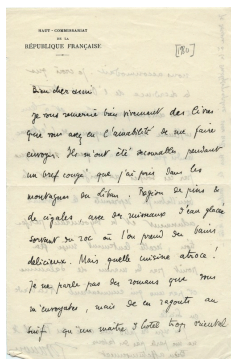 HAUT-COMMISSARIAT
DE LA
RÉPUBLIQUE FRANÇAISE
[1920]
Mon cher ami
Je vous remercie bien vivement des livres
que vous avez eu l'amabilité de me faire
envoyer. Ils m'ont été secourables pendant
un bref congé que j'ai pris dans les
montagnes du Liban. Région de pins &
de cigales, avec des ruisseaux d'eau glacée
sortant du roc où l'on prend des bains
délicieux. Mais quelle cuisine atroce !
Je ne parle pas des romans que vous
m'envoyâtes, mais de ces ragoûts au
suif qu'un maître d'hôtel trop oriental